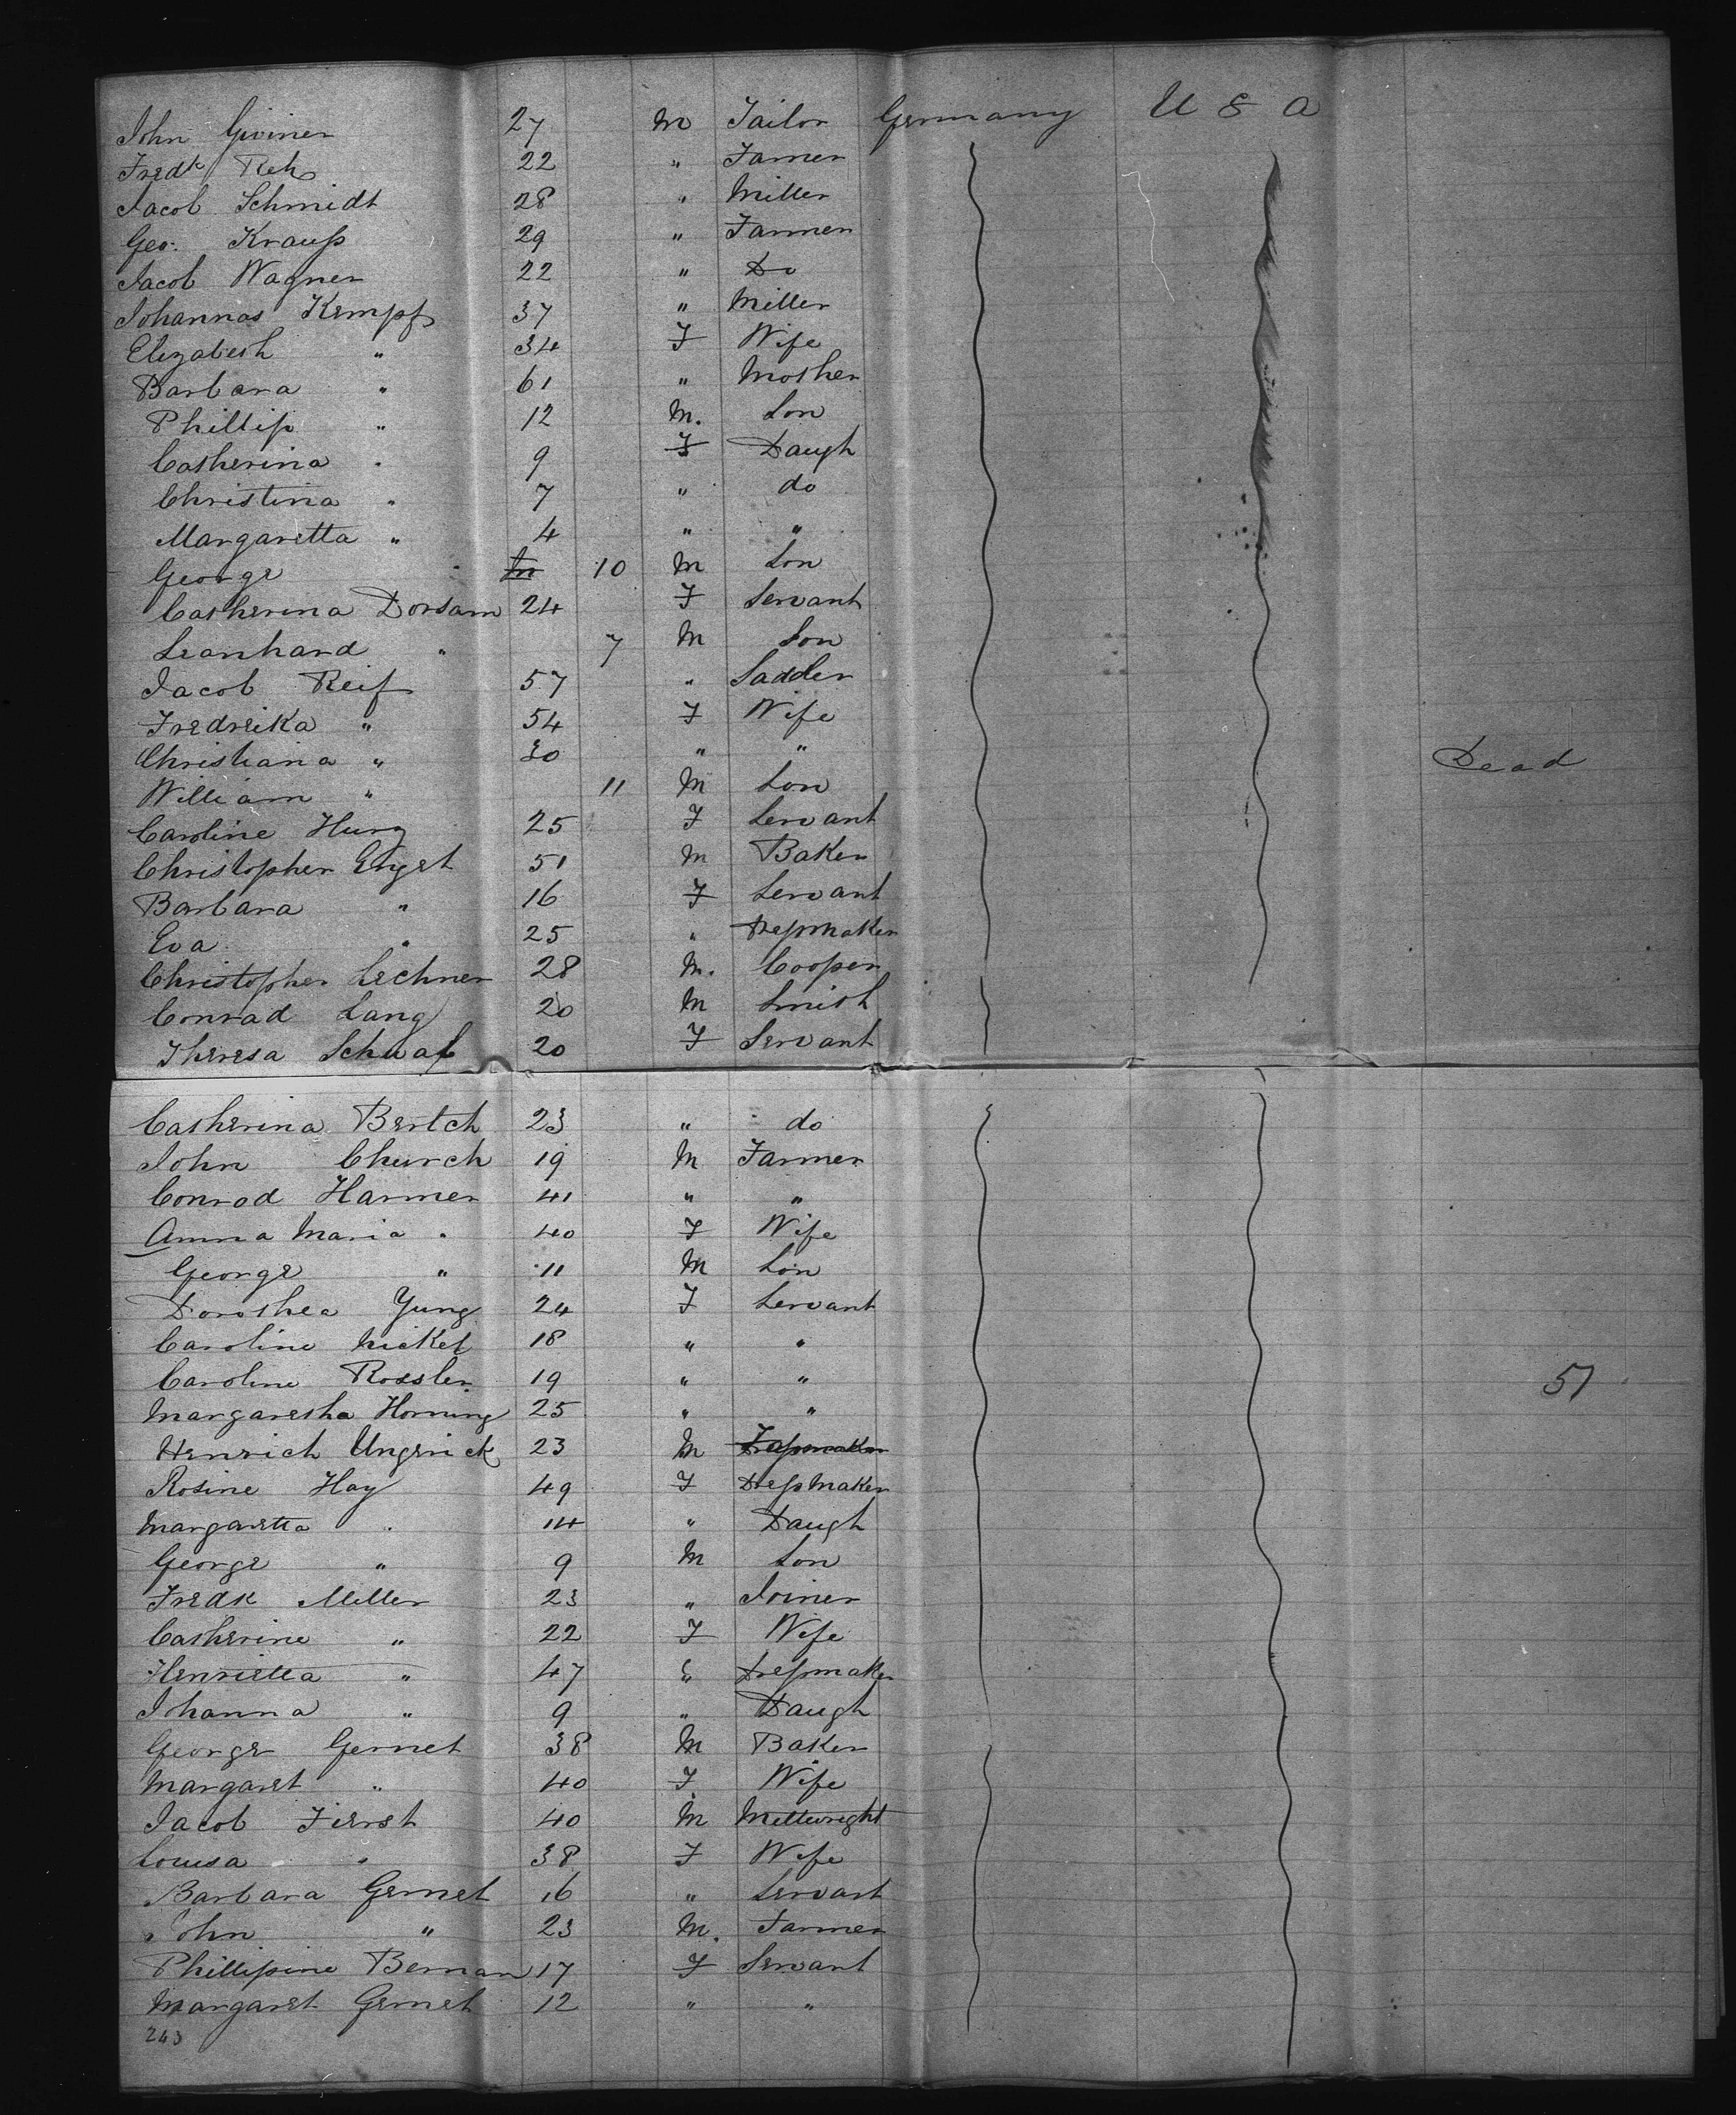 John Giviner 27 M Tailor Germany U S A
Fredk Reh 22 " Farmer
Jacob Schmidt 28 " Miller
Geo. Krauß 29 " Farmer
Jacob Wagner 22 " Do
Johannas Kempf 37 " Miller
Elizabeth " 34 F Wife
Barbara " 61 " Mother
Phillip " 12 M. Son
Catherina " 9 F Daugh
Christina " 7 " do
Margaretta " 4 " "
George " 10 M Son
Catherina Dorsam 24 F Servant
Leonhard " 7 M Son
Jacob Reif 57 " Sadler
Fredreika " 54 F Wife
Christiana " 30 " " Dead
William " 11 M Son
Caroline Hurg 25 F Servant
Christopher Engel 51 M Baker
Barbara " 16 F Servant
Eva " 25 " Dreßmaker
Christopher Lechner 28 M. Cooper
Conrad Lang 20 M Smith
Theresa Schaaf 20 F Servant
Catherina Bertch 23 " do
John Church 19 M Farmer
Conrad Harmer 41 " "
Anna Maria " 40 F Wife
George " 11 M Son
Dorothea Yung 24 F Servant
Caroline Nickel 18 " "
Caroline Rossler 19 " " 51
Margaretha Hornung 25 " "
Henrich Ungerick 23 M Dreßmaker
Rosine Hay 49 F Dreßmaker
Margaretta " 14 " Daugh
George " 9 M Son
Fredk Miller 23 " Joiner
Catherine " 22 F Wife
Henrietta " 47 " Dreßmaker
Johanna " 9 " Daugh
George Gernet 38 M Baker
Margaret " 40 F Wife
Jacob Fierst 40 M Millwright
Louisa " 38 F Wife
Barbara Gernet 16 " Servant
John " 23 M. Farmer
Phillipine Beman 17 F Servant
Margaret Gernet 12 " "
243